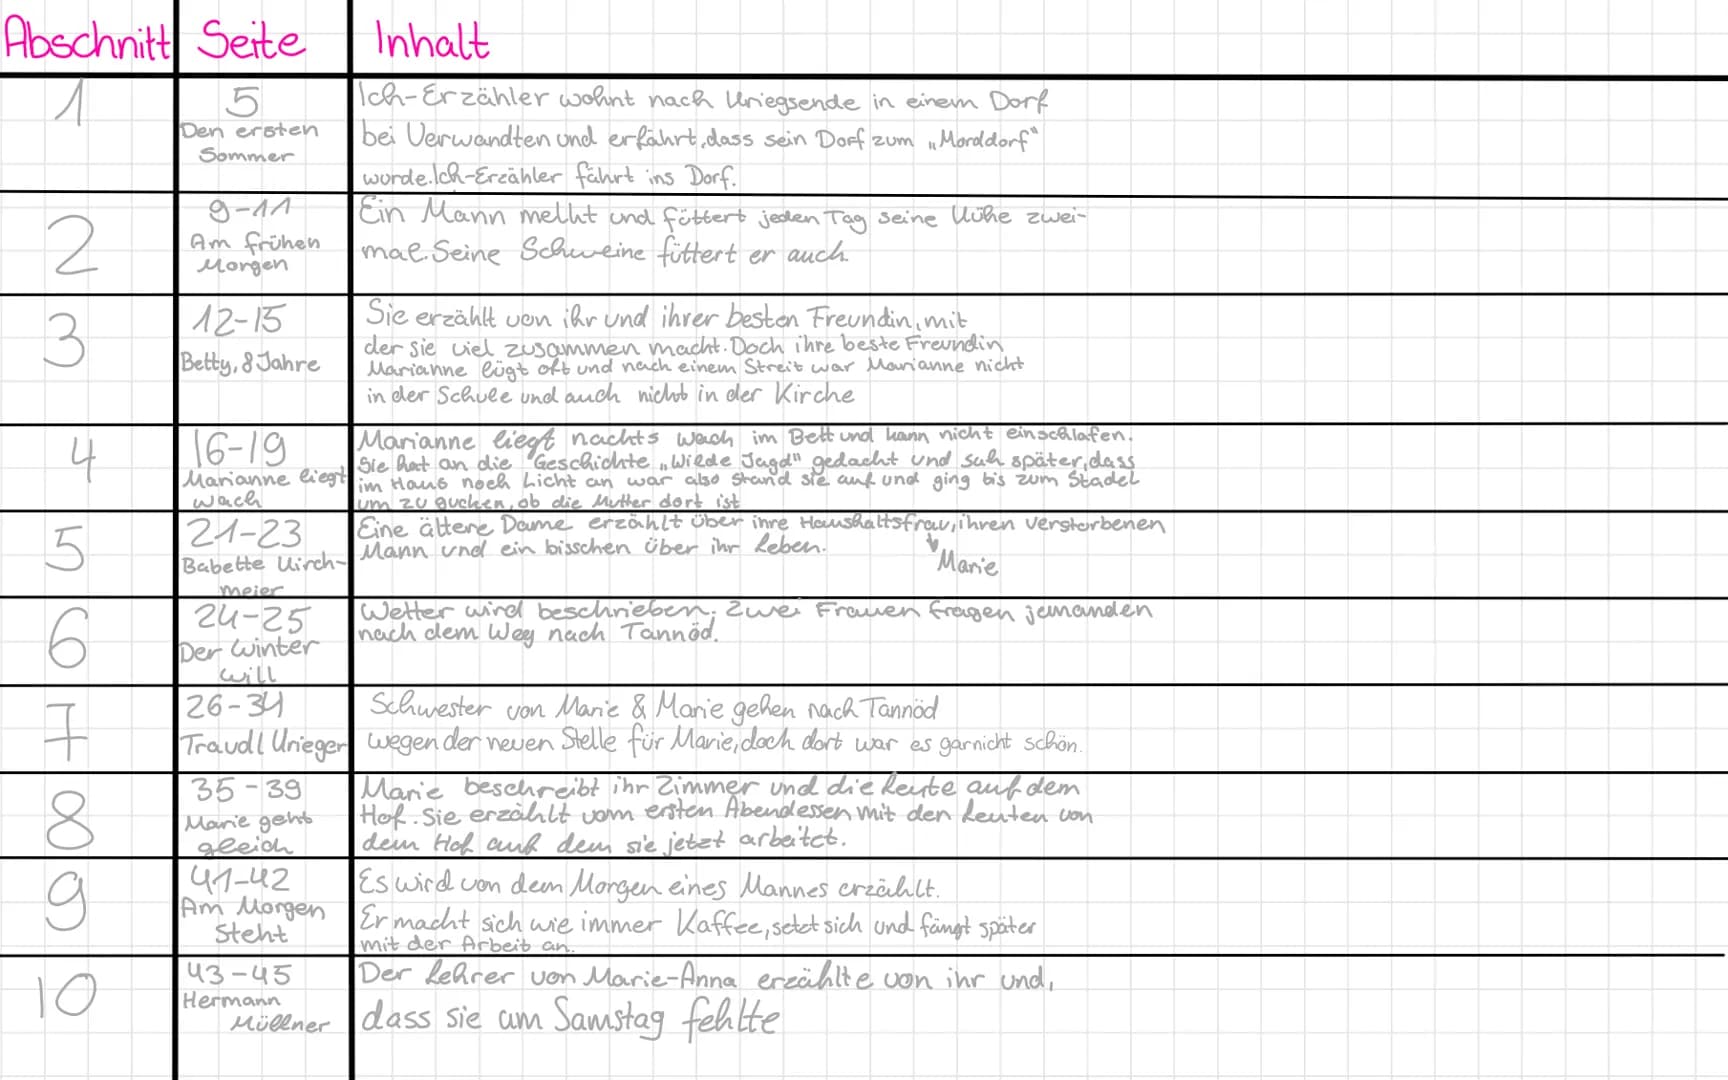 Abschnitt Seite Inhalt
1 5 Ich-Erzähler wohnt nach Kriegsende in einem Dorf
Den ersten bei Verwandten und erfährt, dass sein Dorf zum „Morddorf“
Sommer wurde. Ich-Erzähler fährt ins Dorf.
2 9-11 Ein Mann melkt und füttert jeden Tag seine Kühe zwei-
Am frühen mal. Seine Schweine füttert er auch.
Morgen
3 12-15 Sie erzählt von ihr und ihrer besten Freundin, mit
der sie viel zusammen macht. Doch ihre beste Freundin
Betty, 8 Jahre Marianne lügt oft und nach einem Streit war Marianne nicht
in der Schule und auch nicht in der Kirche
4 16-19 Marianne liegt nachts wach im Bett und kann nicht einschlafen.
Sie hat an die Geschichte „Wilde Jagd" gedacht und sah später, dass
Marianne liegt im Haus noch Licht an war also stand sie auf und ging bis zum Stadel
wach um zu gucken, ob die Mutter dort ist
5 21-23 Eine ältere Dame erzählt über ihre Haushaltsfrau, ihren verstorbenen
Mann und ein bisschen über ihr Leben.
Babette Kirch- Marie
meier
6 24-25 Wetter wird beschrieben. Zwei Frauen fragen jemanden
Der Winter nach dem Weg nach Tannöd.
will
7 26-34 Schwester von Marie & Marie gehen nach Tannöd
Traudl Krieger wegen der neuen Stelle für Marie, doch dort war es garnicht schön.
8 35-39 Marie beschreibt ihr Zimmer und die Leute auf dem
Marie geht Hof. Sie erzählt vom ersten Abendessen mit den Leuten von
gleich dem Hof auf dem sie jetzt arbeitet.
9 41-42 Es wird von dem Morgen eines Mannes erzählt.
Am Morgen Er macht sich wie immer Kaffee, setzt sich und fängt später
Steht mit der Arbeit an.
10 43-45 Der Lehrer von Marie-Anna erzählte von ihr und,
Hermann dass sie am Samstag fehlte
Müllner